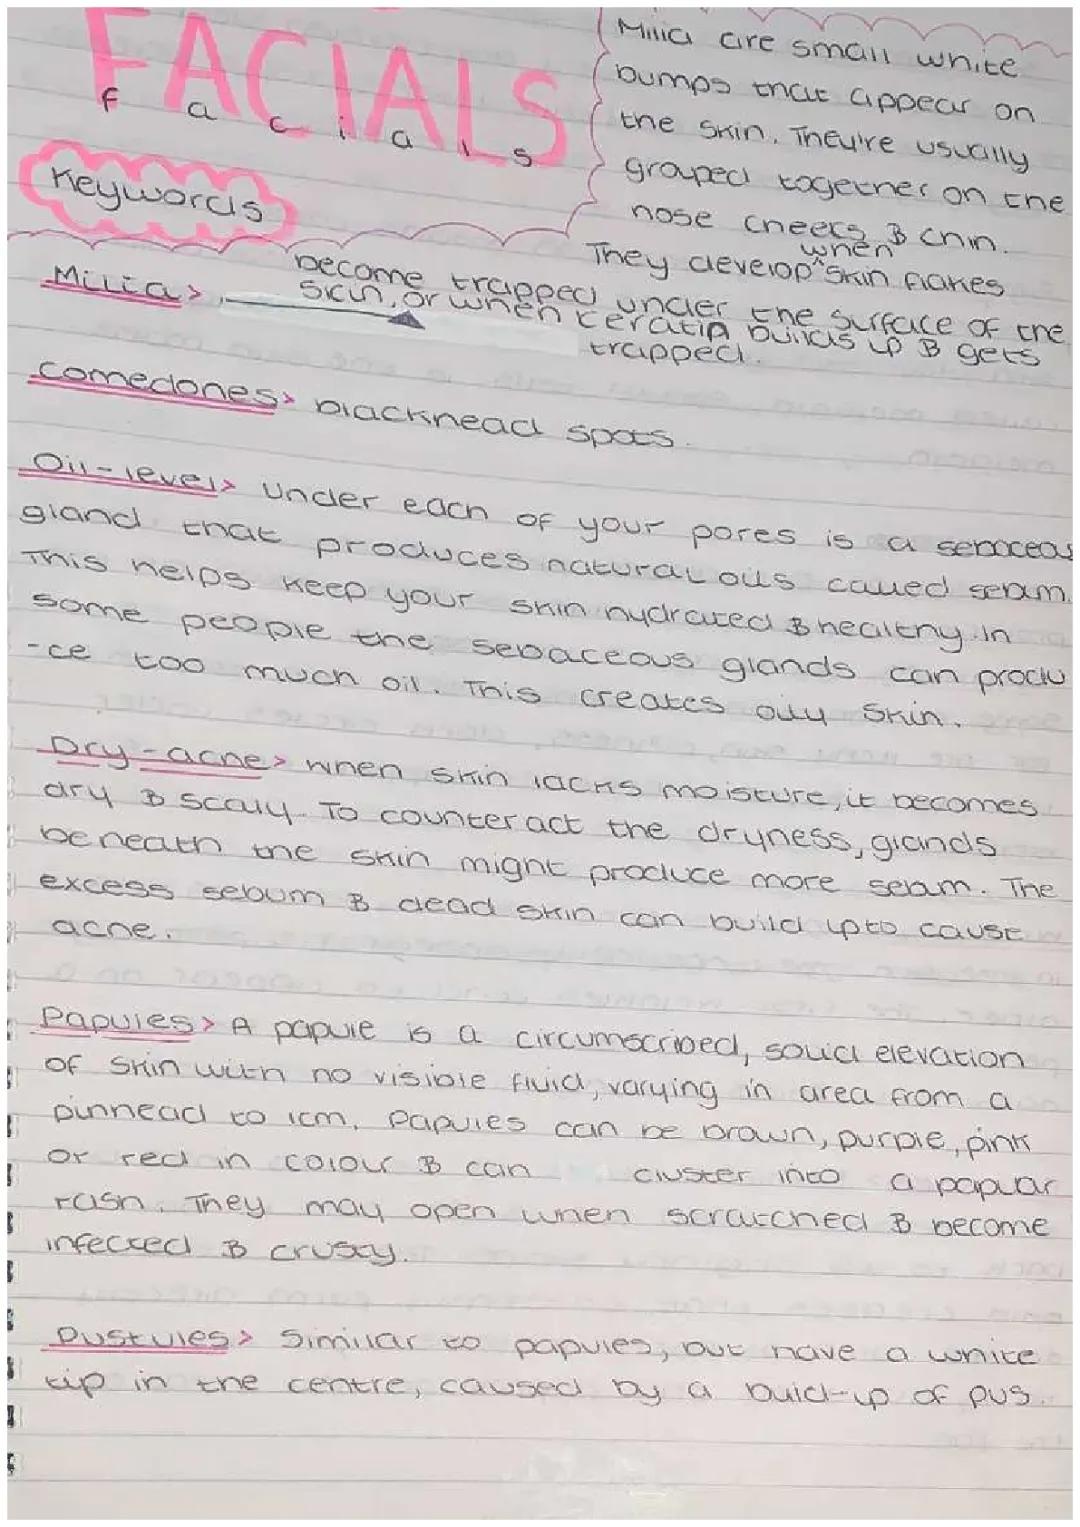 FACIALS
facials
Keywords
Milia are small white
bumps that appear on
the skin. They're usually
grouped together on the
nose cheeks & chin.
They develop when skin flakes
Milia> become trapped under the surface of the
skin, or when keratin builds up & gets
trapped.
comedones> blackhead spots.
Oil-level> Under each of your pores is a sebaceous
gland that produces natural oils called sebum.
This helps keep your skin hydrated & healthy. in
some people the sebaceous glands can produ
-ce too much oil. This creates oily skin.
Dry-acne> when skin lacks moisture, it becomes
dry & scaly. To counteract the dryness, glands
beneath the skin might produce more sebum. The
excess sebum & dead skin can build up to cause
acne.
Papules> A papule is a circumscribed, solid elevation
of skin with no visible fluid, varying in area from a
pinhead to 1cm. Papules can be brown, purple, pink
or red in colour & can cluster into a papular
rash. They may open when scratched & become
infected & crusty.
Pustules> Similar to papules, but have a white
tip in the centre, caused by a build-up of pus.